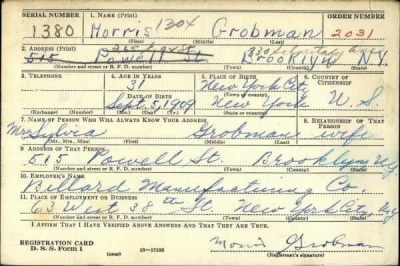 SERIAL NUMBER 1. NAME (Print) ORDER NUMBER
1380 Morris 1304 Grobman 2031
(First) (Middle) (Last)
2. ADDRESS (Print)
515 Powell St. Brooklyn N.Y.
(Number and street or R. F. D. number) (Town) (County) (State)
3. TELEPHONE 4. AGE IN YEARS 5. PLACE OF BIRTH 6. COUNTRY OF CITIZENSHIP
31 New York City
DATE OF BIRTH (Town or county)
Sept. 5, 1909 New York U. S.
(Exchange) (Number) (Mo.) (Day) (Yr.) (State or country)
7. NAME OF PERSON WHO WILL ALWAYS KNOW YOUR ADDRESS 8. RELATIONSHIP OF THAT PERSON
Mrs Sylvia Grobman wife
(Mr., Mrs., Miss) (First) (Middle) (Last)
9. ADDRESS OF THAT PERSON
515 Powell St. Brooklyn N.Y.
(Number and street or R. F. D. number) (Town) (County) (State)
10. EMPLOYER'S NAME
Billard Manufacturing Co.
11. PLACE OF EMPLOYMENT OR BUSINESS
63 West 38th St New York City N.Y.
(Number and street or R. F. D. number) (Town) (County) (State)
I AFFIRM THAT I HAVE VERIFIED ABOVE ANSWERS AND THAT THEY ARE TRUE.
REGISTRATION CARD
D. S. S. Form 1 (over) 16-17105 Morris Grobman
(Registrant's signature)